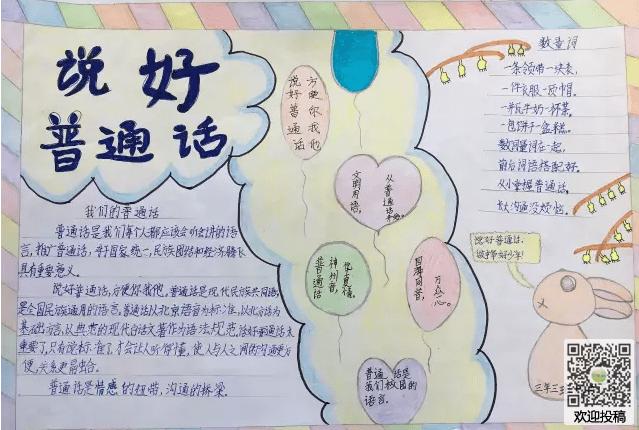 说好
普通话
我们的普通话
普通话是我们每个人都应该会听会讲的语
言，推广普通话，对于国家统一，民族团结和经济腾飞
具有重要意义。
说好普通话，方便你我他。普通话是现代民族共同语，
是全国民族通用的语言。普通话以北京语音为标准，以北方话为
基础方言，从典范的现代白话文著作为语法规范，说好普通话太
重要了，只有说标准了，才会让人听得懂，使人与人之间的沟通更方
便，关系更融洽。
普通话是情感的纽带，沟通的桥梁。
方便你我他
说好普通话
文明用语，
从普通话开始。
华夏情。
神州音，
普通话
百群同音，
万众一心。
普通话是
我们校园的
语言。
数量词
一条领带一块表，
一件衣服一顶帽。
一瓶牛奶一杯茶，
一包饼干一盒糕。
数词量词在一起，
前后词语搭配好。
从小掌握普通话，
长大沟通没烦恼。
说好普通话，
做个好少年！
三年三班
欢迎投稿